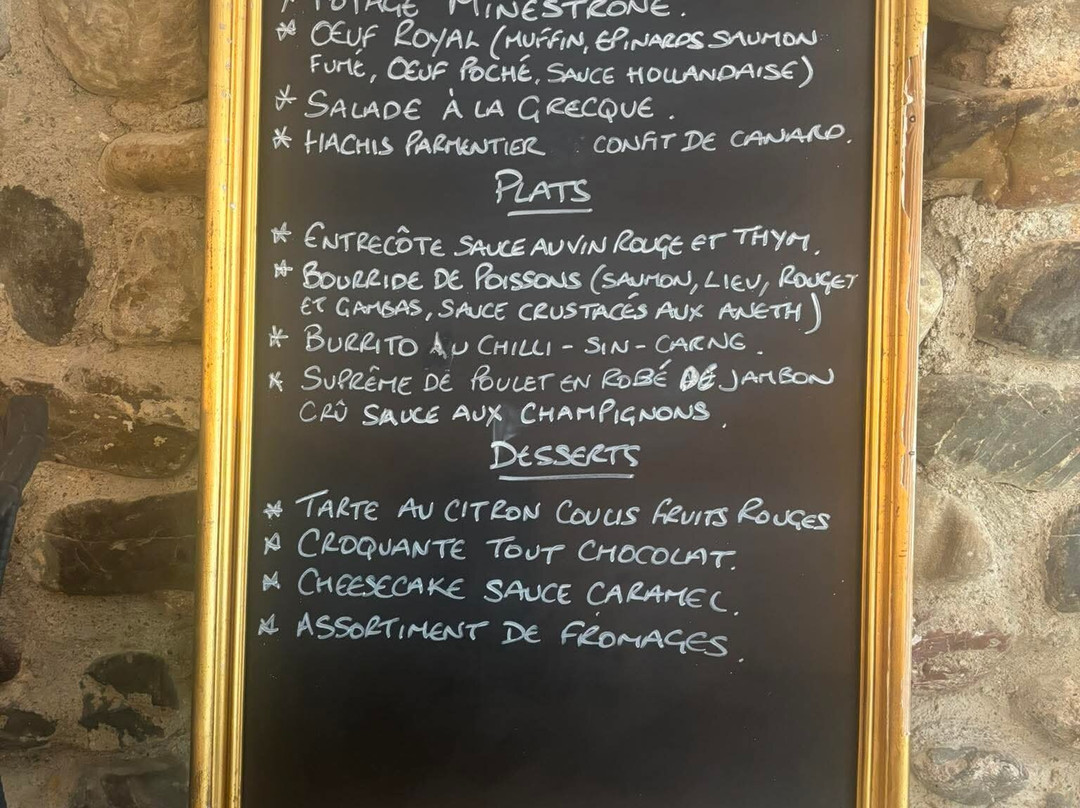 * POTAGE MINESTRONE.
* ŒUF ROYAL (MUFFIN, EPINARDS SAUMON
FUMÉ, ŒUF POCHÉ, SAUCE HOLLANDAISE)
* SALADE À LA GRECQUE.
* HACHIS PARMENTIER CONFIT DE CANARD.
PLATS
* ENTRECÔTE SAUCE AU VIN ROUGE ET THYM.
* BOURRIDE DE POISSONS (SAUMON, LIEU, ROUGET
ET GAMBAS, SAUCE CRUSTACÉS AUX ANETH)
* BURRITO AU CHILLI - SIN - CARNE.
* SUPRÊME DE POULET EN ROBÉ DE JAMBON
CRÛ SAUCE AUX CHAMPIGNONS.
DESSERTS
* TARTE AU CITRON COULIS FRUITS ROUGES
* CROQUANTE TOUT CHOCOLAT.
* CHEESECAKE SAUCE CARAMEL.
* ASSORTIMENT DE FROMAGES.